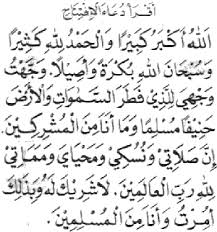 اقرأ دعاء الافتتاح
اَللّٰهُ اَكْبَرُ كَبِيْرًا وَالْحَمْدُ لِلّٰهِ كَثِيْرًا
وَسُبْحَانَ اللّٰهِ بُكْرَةً وَاَصِيْلًا. وَجَّهْتُ
وَجْهِيَ لِلَّذِيْ فَطَرَ السَّمٰوَاتِ وَالْاَرْضَ
حَنِيْفًا مُسْلِمًا وَمَا اَنَا مِنَ الْمُشْرِكِيْنَ
اِنَّ صَلَاتِيْ وَنُسُكِيْ وَمَحْيَايَ وَمَمَاتِيْ
لِلّٰهِ رَبِّ الْعَالَمِيْنَ. لَاشَرِيْكَ لَهُ وَبِذٰلِكَ
اُمِرْتُ وَاَنَا مِنَ الْمُسْلِمِيْنَ.